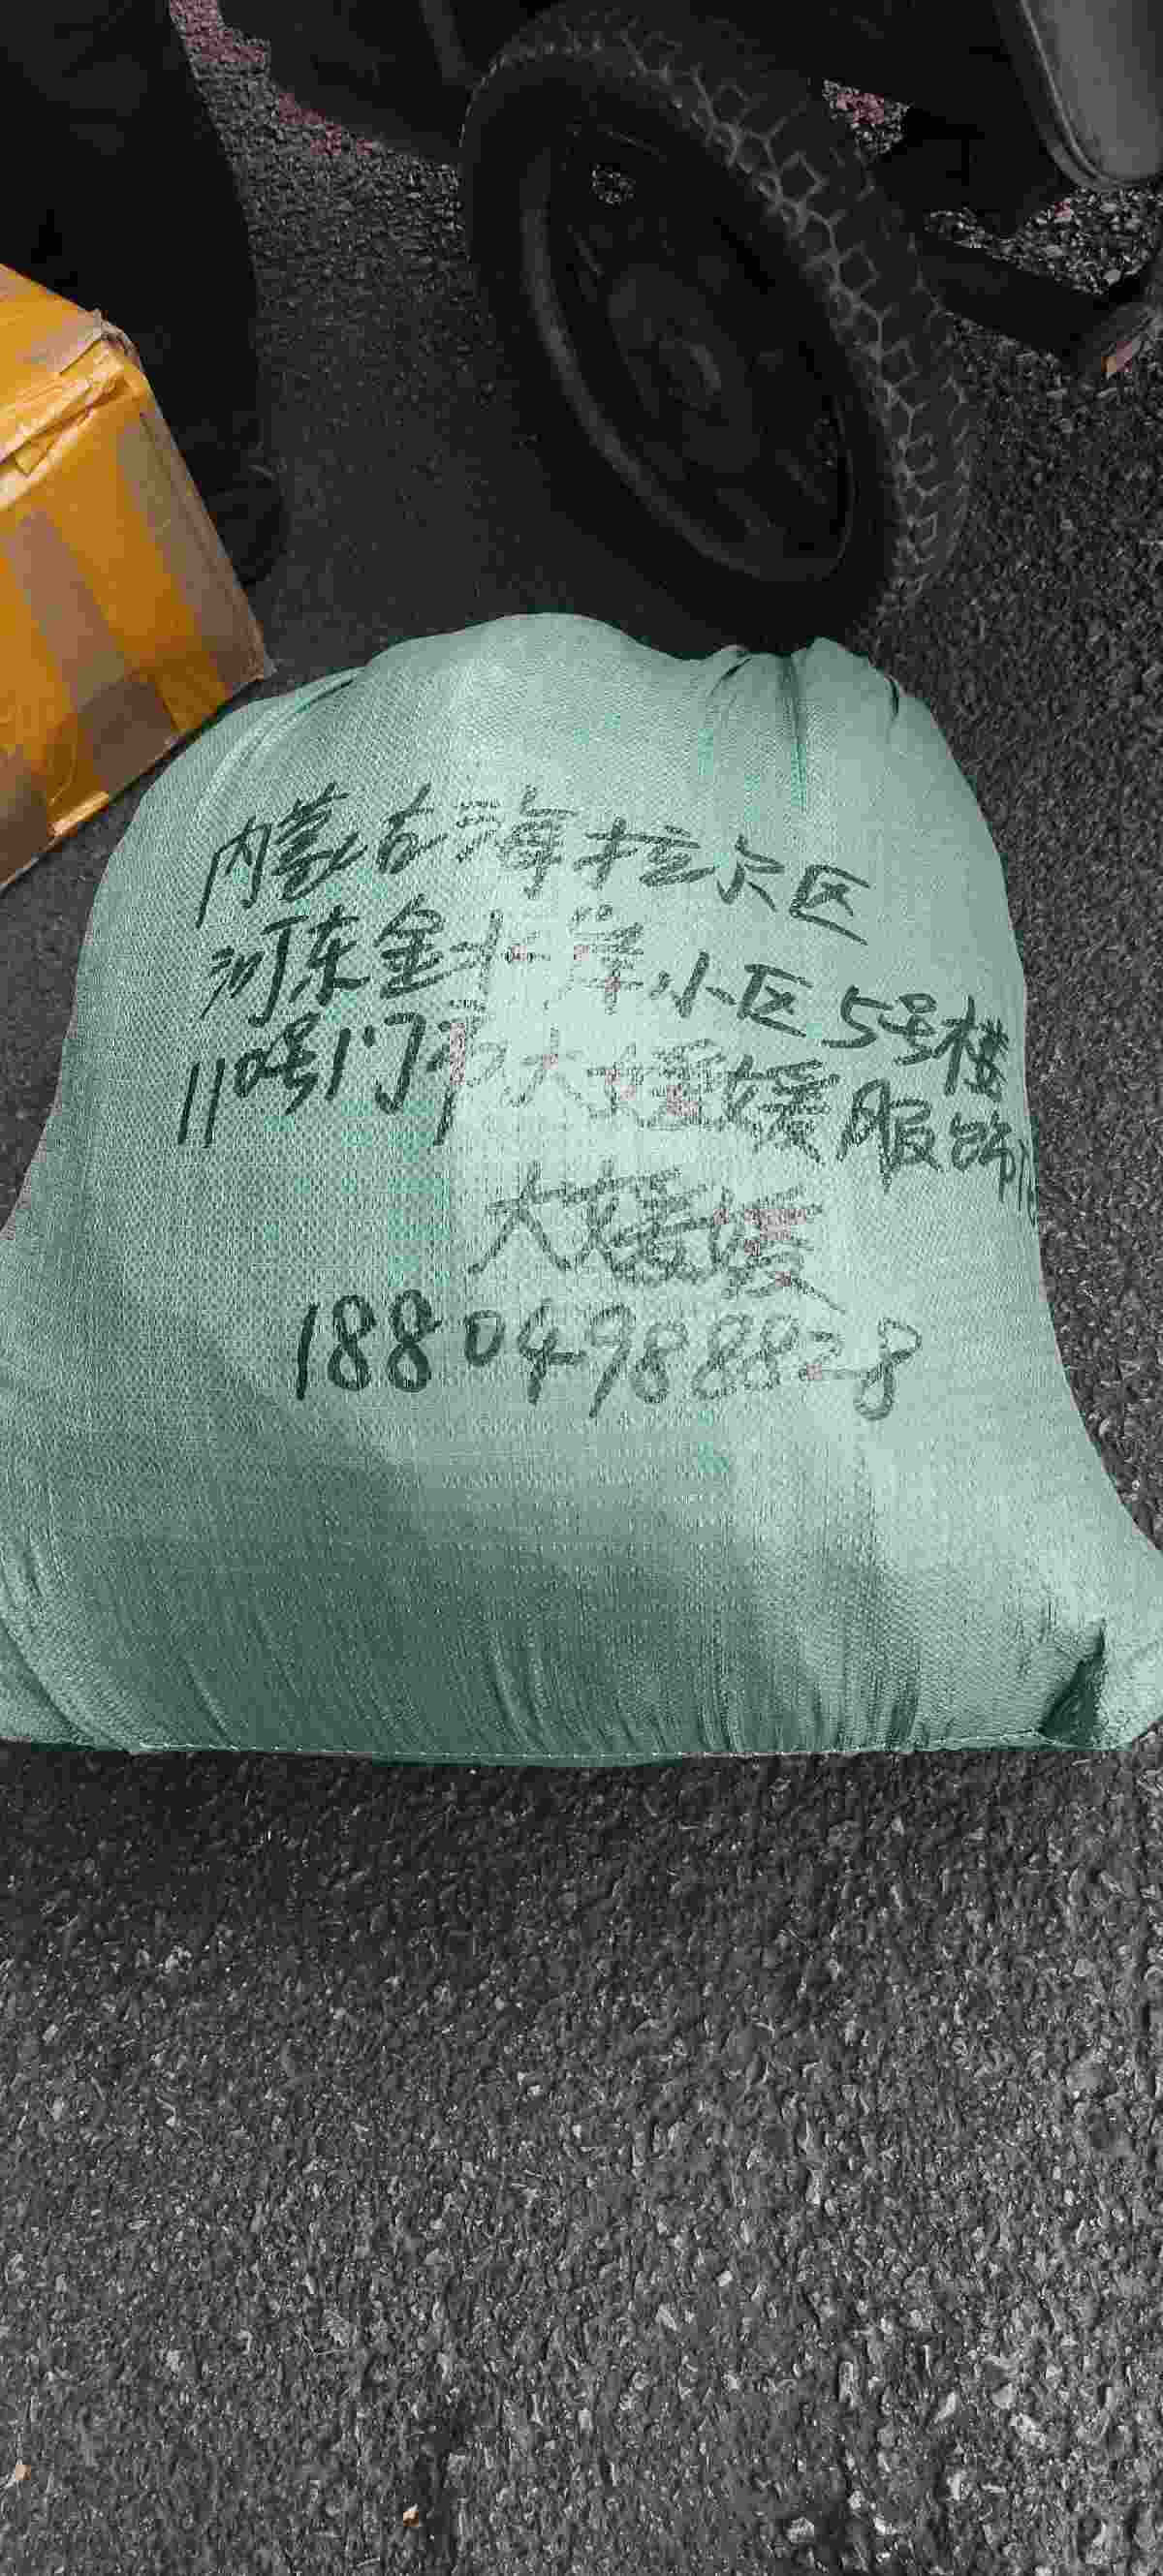 内蒙古海拉尔区
河东金水岸小区5号楼
110号门市大媛媛服饰
大媛媛
18804988828